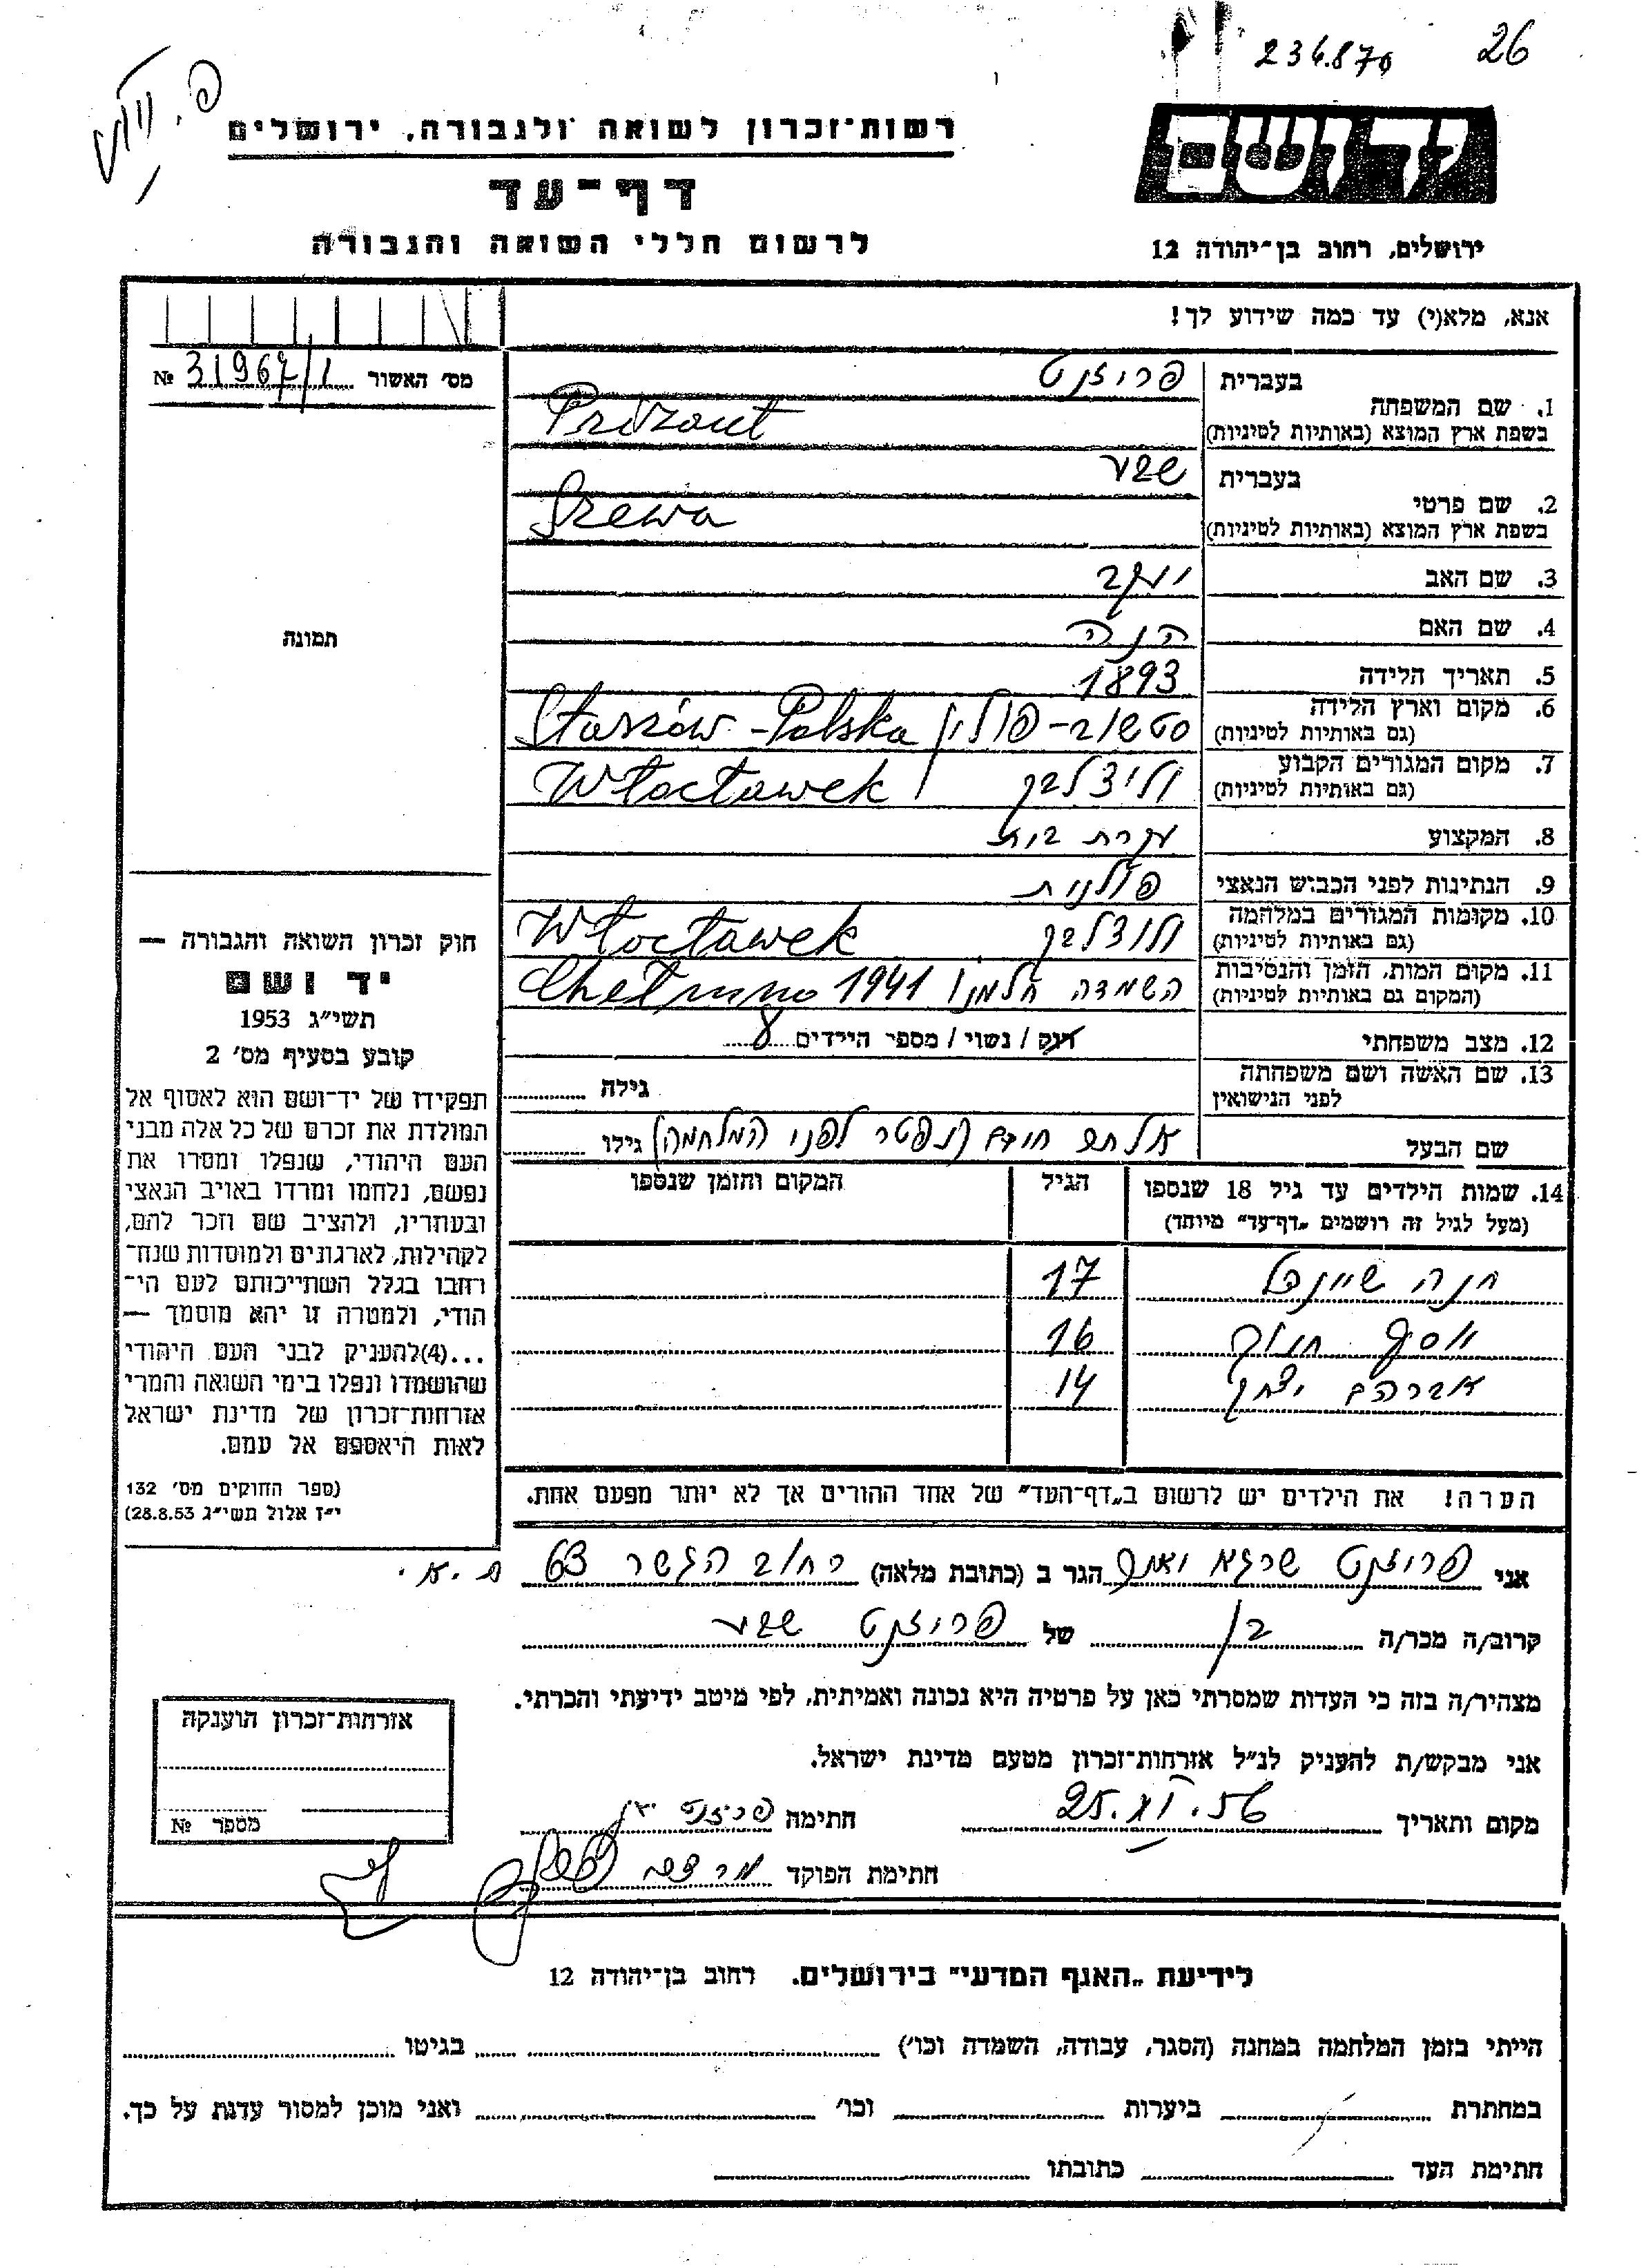 234.870 26
יד ושם
רשות־זכרון לשואה ולגבורה, ירושלים
דף־עד
לרשום חללי השואה והגבורה
ירושלים, רחוב בן־יהודה 12
אנא, מלא(י) עד כמה שידוע לך!
מס׳ האשור 31967/1 №
בעברית פריזנט
1. שם המשפחה
בשפת ארץ המוצא (באותיות לטיניות) Prizant
בעברית שבע
2. שם פרטי
בשפת ארץ המוצא (באותיות לטיניות) Szewa
3. שם האב יעקב
4. שם האם חנה
5. תאריך הלידה 1893
6. מקום וארץ הלידה
(גם באותיות לטיניות) סטשוב - פולין Staszów - Polska
7. מקום המגורים הקבוע
(גם באותיות לטיניות) ולוצלבק Włocławek
8. המקצוע עקרת בית
9. הנתינות לפני הכבוש הנאצי פולנית
10. מקומות המגורים במלחמה
(גם באותיות לטיניות) ולוצלבק Włocławek
11. מקום המות, הזמן והנסיבות
(המקום גם באותיות לטיניות) השמדה חלמנו Chełmno 1941
12. מצב משפחתי רוק / נשוי / מספר הילדים 8
13. שם האשה ושם משפחתה
לפני הנישואין
גילה
שם הבעל אלתר חיים (נפטר לפני המלחמה) גילו
14. שמות הילדים עד גיל 18 שנספו הגיל המקום והזמן שנספו
(מעל לגיל זה רושמים „דף־עד״ מיוחד)
חנה שיינדל 17
יוסף חנוך 16
אברהם יצחק 14
הערה! את הילדים יש לרשום ב„דף־העד״ של אחד ההורים אך לא יותר מפעם אחת.
תמונה
חוק זכרון השואה והגבורה —
יד ושם
תשי״ג 1953
קובע בסעיף מס׳ 2
תפקידו של יד־ושם הוא לאסוף אל
המולדת את זכרם של כל אלה מבני
העם היהודי, שנפלו ומסרו את
נפשם, נלחמו ומרדו באויב הנאצי
ובעוזריו, ולהציב שם וזכר להם,
לקהילות, לארגונים ולמוסדות שנח־
רחבו בגלל השתייכותם לעם הי־
הודי, ולמטרה זו יהא מוסמך —
...(4) להעניק לבני העם היהודי
שהושמדו ונפלו בימי השואה והמרי
אזרחות־זכרון של מדינת ישראל
לאות היאספם אל עמם.
(ספר החוקים מס׳ 132
י״ז אלול תשי״ג 28.8.53)
אני פריזנט שרגא הגר ב (כתובת מלאה) רחוב הגשר 63 ת.א.
קרוב/ה מכר/ה בן של פריזנט שבע
מצהיר/ה בזה כי העדות שמסרתי כאן על פרטיה היא נכונה ואמיתית, לפי מיטב ידיעתי והכרתי.
אני מבקש/ת להעניק לנ״ל אזרחות־זכרון מטעם מדינת ישראל.
מקום ותאריך 25.VI.56 חתימה פריזנט
חתימת הפוקד
אזרחות־זכרון הוענקה
מספר №
לידיעת „האגף המדעי״ בירושלים. רחוב בן־יהודה 12
הייתי בזמן המלחמה במחנה (הסגר, עבודה, השמדה וכו׳) בגיטו
במחתרת ביערות וכו׳ ואני מוכן למסור עדות על כך.
חתימת העד כתובתו